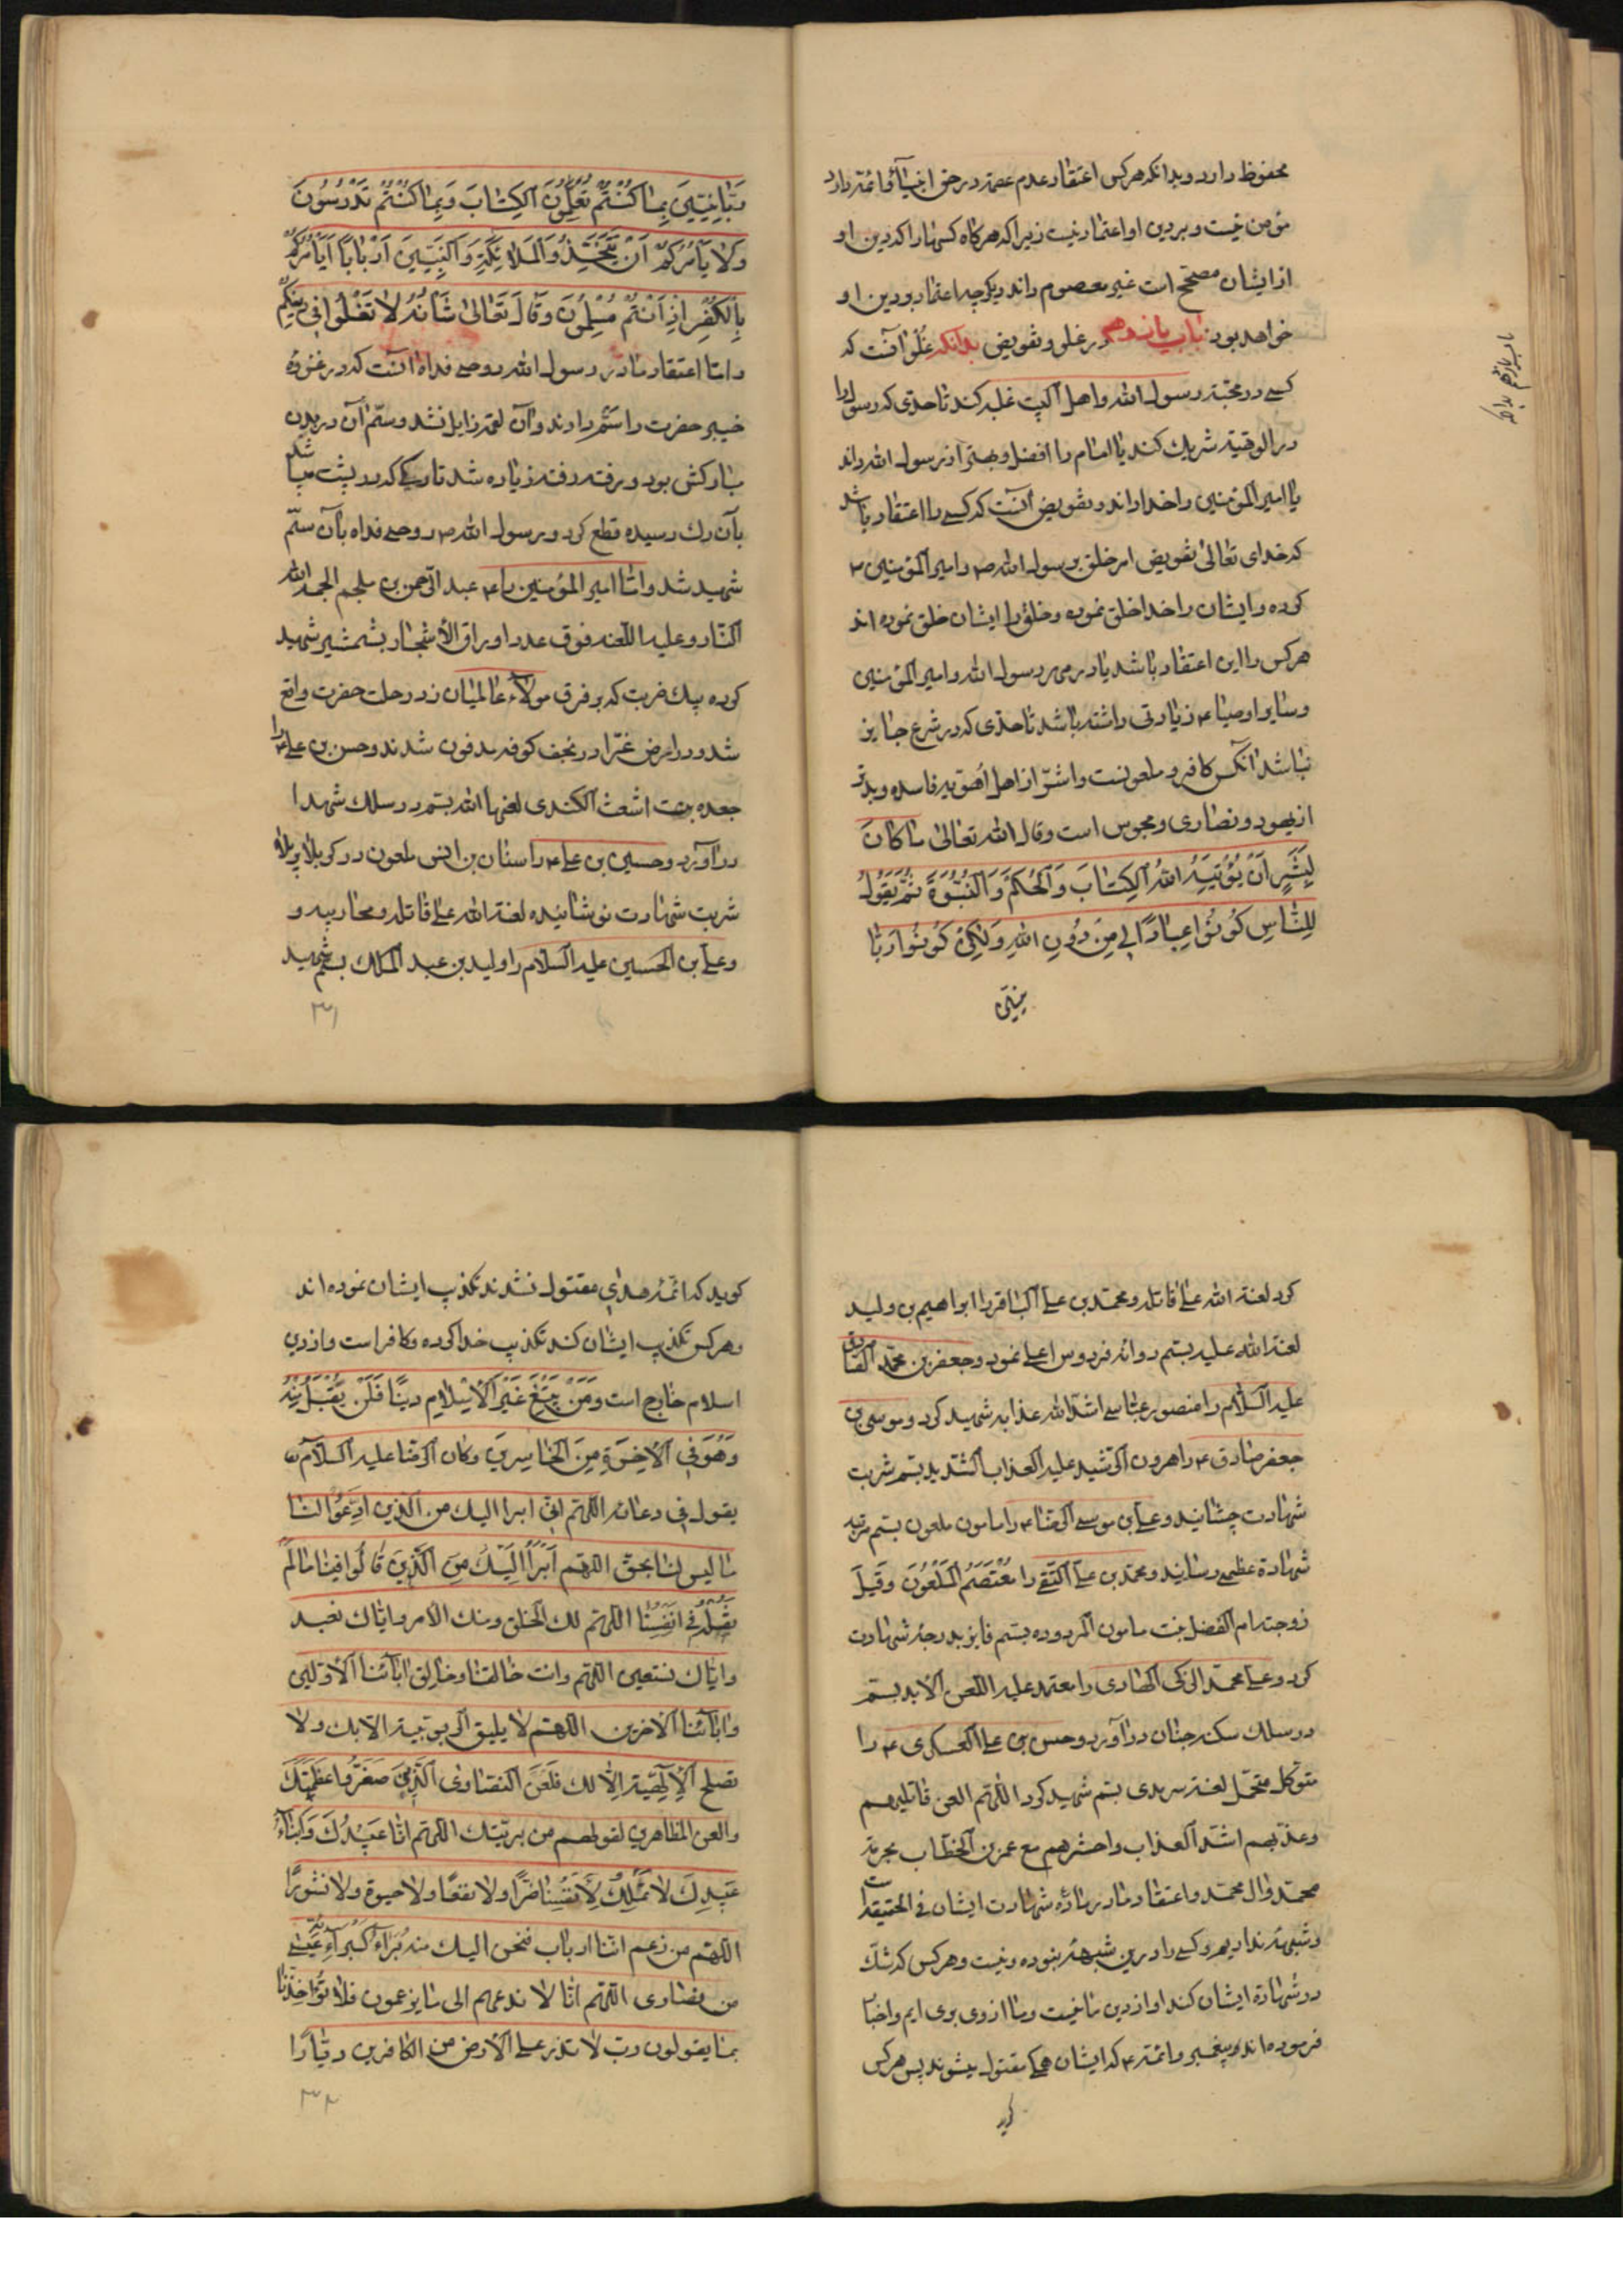 محفوظ دارد و بدانکه هرکس اعتقاد عدم عصمة در حق انبیآء و ائمّه دارد
مؤمن نیست و بر دین او اعتماد نیست زیرا که هرکاه کسهارا که دین او
از ایشان مصحّح است غیر معصوم داند دیکر چه اعتماد بر دین او
خواهد بود باب یازدهم در غلو و تفویض بدانکه غُلُوّ آنست که
کسے در محبّة رسول الله و اهل البیت غلبه کند تا حدّی که رسول را
در الوهّیة شریك کند یا امام را افضل و بهتر از رسول الله داند
یا امیر المؤمنین را خدا داند و تفویض آنست که کسے را اعتقاد باشد
که خدای تعالیٰ تفویض امر خلق برسول الله ص و امیر المؤمنین ع
کرده و ایشان را خدا خلق نموده و خلق را ایشان خلق نموده اند
هرکس را این اعتقاد باشد یا در رسول الله و امیر المؤمنین
و سایر اوصیا ع زیادتی داشته باشد تا حدّی که در شرع جایز
نباشد آنکس کافر و ملعونست و اشرّ از اهل فاسده و بدتر
از یهود و نصاری و مجوس است و قال الله تعالیٰ ما کانَ
لِبَشَرٍ اَنْ یُؤْتِیَهُ اللهُ الْکِتٰابَ وَالْحُکْمَ وَالنُّبُوَّةَ ثُمَّ یَقُولَ
لِلنّٰاسِ کُونُوا عِبٰادًا لِی مِنْ دُونِ اللهِ وَلٰکِنْ کُونُوا رَبّٰا
نیّن
باب یازدهم بدانکه
رَبّٰانِیّینَ بِمٰا کُنْتُمْ تُعَلِّمُونَ الْکِتٰابَ وَبِمٰا کُنْتُمْ تَدْرُسُونَ
وَلٰا یَأْمُرَکُمْ اَنْ تَتَّخِذُوا الْمَلٰائِکَةَ وَالنَّبِیّینَ اَرْبٰابًا اَیَأْمُرُکُمْ
بِالْکُفْرِ اِذْ اَنْتُمْ مُسْلِمُونَ وَقٰالَ تَعٰالیٰ شَأْنُهُ لٰا تَغْلُوا فِی دِینِکُمْ
و امّا اعتقاد ما در رسول الله روحے فداه آنست که در غزوهٔ
خیبر حضرت را سَمّ دادند و آن لقمه زایل نشد و سمّ آن در بدن
مبارکش بود و رفته رفته زیاده شد تا رکے که در پشت میباشد
بآن رك رسیده قطع کرد و رسول الله ص روحے فداه بآن سمّ
شهید شد و امّا امیر المؤمنین را ع عبد الرّحمن بن ملجم الجمه الله
النّار و علیه اللعنه فوق عدد اوراق الأشجار بشمشیر شهید
کرده بیك ضربت که بر فرق مولاء عالمیان زد رحلت حضرت واقع
شد و در ارض غرّا در نجف کوفه مدفون شدند و حسن بن علی ع را
جعده بنت اشعث الکندی لعنها الله بسم در سلك شهدا
در آورد و حسین بن علے ع را سنان بن انس ملعون در کربلاء پر بلا
شربت شهادت نوشانیده لعنة الله علے قاتله و محاربیه و
و علے بن الحسین علیه السلام را ولید بن عبد الملك بسم شهید
۳۱
کرد لعنة الله علے قاتله و محمّد بن علے الباقر را ابراهیم بن ولید
لعنة الله علیه بسم روانه فردوس اعلے نمود و جعفر بن محمّد الصّادق
علیه السلام را منصور عبّاسے اشدّ الله عذابه شهید کرد و موسی بن
جعفر صادق ع را هرون الرّشید علیه العذاب الشّدید بسم شربت
شهادت چشانید و علے بن موسے الرّضا ع را مامون ملعون بسم مرتبه
شهادة عظمے رسانید و محمّد بن علے التّقے را مُعْتَصَمُ الْمَلْعُونُ وَ قِیلَ
زوجته ام الفضل بنت مامون المردوده بسم فایز بدرجهٔ شهادت
کرد و علے محمّد الزکی الهادی را معتمد علیه اللّعن الابد بسم
در سلك سکنه جنان در آورد و حسن بن علے العسکری ع را
متوکل لعنة سرمدی بسم شهید کرد اللّهم العن قاتلیهم
و عذّبهم اشدّ العذاب و احشرهم مع عمر بن الخطّاب بحرمة
محمّد و آل محمّد و اعتقاد ما در مادّهٔ شهادت ایشان فے الحقیقة است
و شبهه نداریم و کسے را درین شبههٔ نبوده و نیست و هرکس که شك
در شهادة ایشان کند او از دین ما نیست و ما از وی بری ایم و اخبار
فرموده اند پیغمبر و ائمّه ع که ایشان همکے مقتول میشوند پس هرکس
کوید
کوید که ائمّهٔ هدای مقتول نشدند تکذیب ایشان نموده اند
و هرکس تکذیب ایشان کند تکذیب خدا کرده و کافر است و از دین
اسلام خارج است وَمَنْ یَبْتَغِ غَیْرَ الْاِسْلٰامِ دینًا فَلَنْ یُقْبَلَ مِنْهُ
وَهُوَ فِی الْاٰخِرَةِ مِنَ الْخٰاسِرینَ و کان الرّضا علیه السلام
یقول فی دعائه اللّهم انّی ابرأ الیك من الّذین ادّعوا لنا
ما لیس لنا بحق اللّهم اَبْرَأُ اِلَیْكَ مِنَ الَّذینَ قٰالُوا فینا مٰا لَمْ
نَقُلْهُ فِی اَنْفُسِنٰا اللّهم لك الخلق و منك الامر و ایّاك نعبد
و ایّاك نستعین اللّهم و انت خالقنا و خالق اٰبآئنا الاوّلین
و اٰبآئنا الآخرین اللّهم لا یلیق الرّبوبیة الّا بك و لا
تصلح الالٰهیّة اِلّٰا لك فَالْعَنِ النّصاری الَّذینَ صَغَّرُوا عَظَمَتَكَ
و العن المظاهرین لقولهم من بریّتك اللّهم انّا عَبیدُكَ وَاَبْنٰآءُ
عَبیدِكَ لٰا نَمْلِكُ لِاَنْفُسِنٰا ضَرًّا و لا نفعًا و لا حیوة و لا نشورًا
اللّهم من زعم انّنا ارباب فنحن الیك منه بُرَآءُ کَبُرَآءَةِ عیسے
من نصاری اللّهم انّا لا ندعهم الی ما یزعمون فلا تُؤٰاخِذْنٰا
بما یقولون ربّ لا تذر علے الارض من الکافرین دیّارًا
۳۲